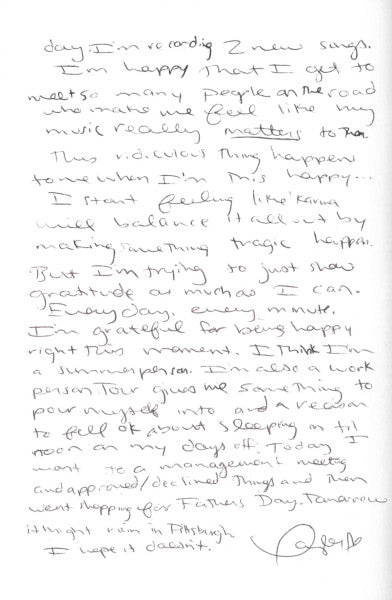 day. I'm recording 2 new songs.
I'm happy that I get to
meet so many people on the road
who make me feel like my
music really matters to them.
This ridiculous thing happens
to me when I'm this happy...
I start feeling like karma
will balance it all out by
making something tragic happen.
But I'm trying to just show
gratitude as much as I can.
Every day, every minute.
I'm grateful for being happy
right this moment. I think I'm
a summer person. I'm also a work
person. Tour gives me something to
pour myself into and a reason
to feel ok about sleeping in til
noon on my days off. Today I
went to a management meeting
and approved/declined things and then
went shopping for Fathers Day. Tomorrow
it might rain in Pittsburgh.
I hope it doesn't.